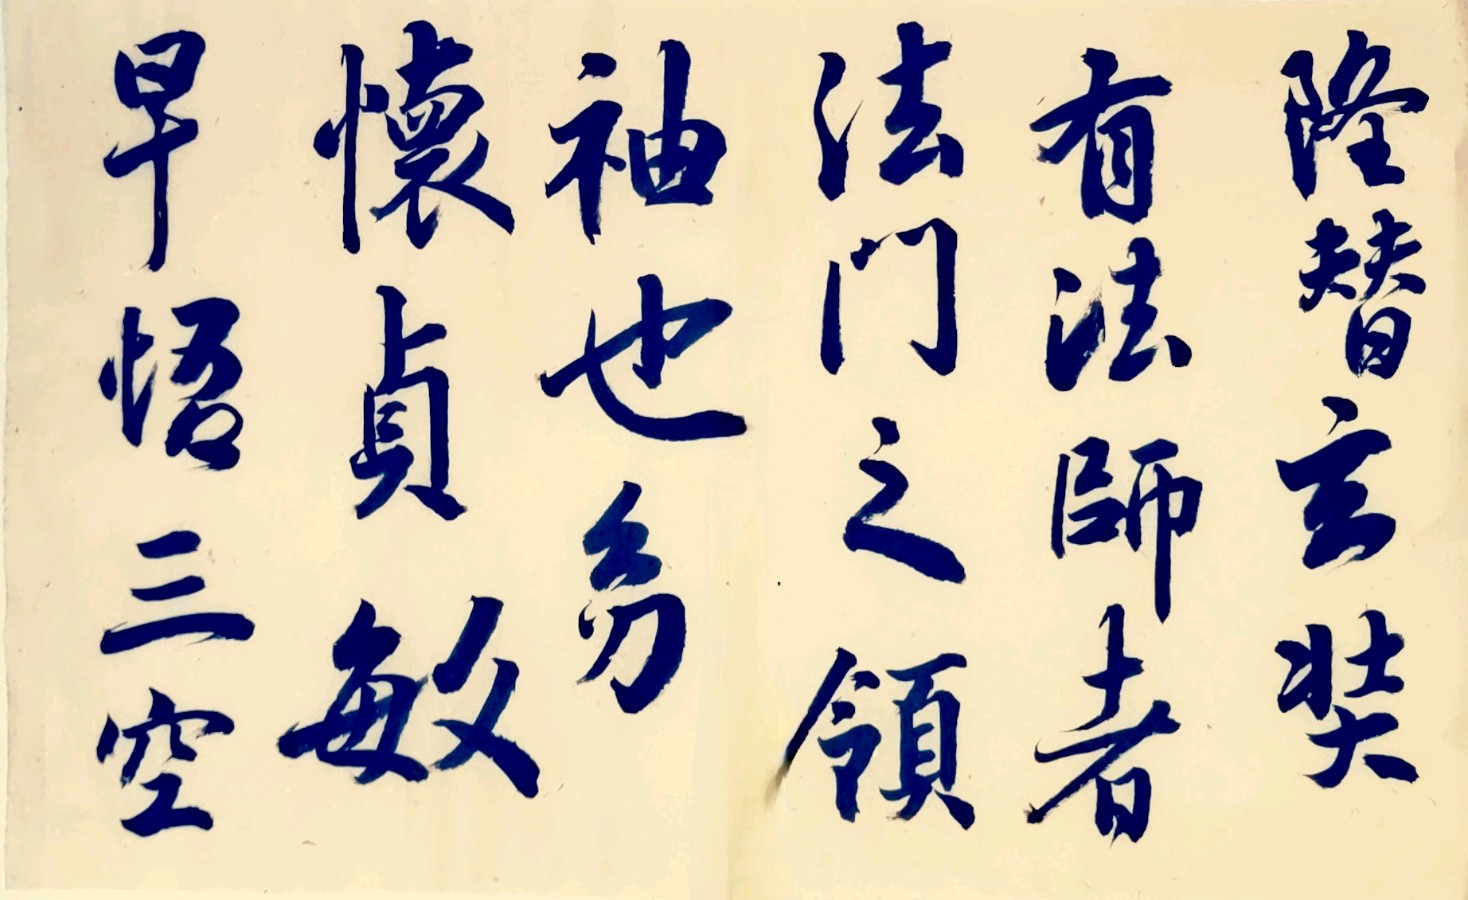 隆替玄奘
有法師者
法門之領
袖也幼
懷貞敏
早悟三空